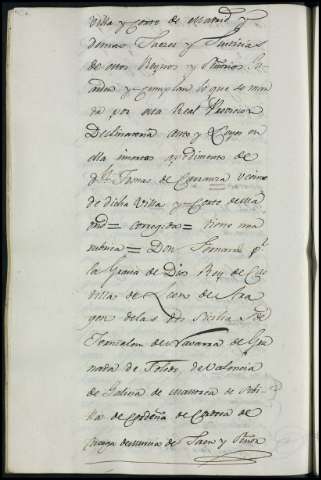 villa y Corte de Madrid y
demas Jueces y Justicias
de estos Reynos y Señorios Gu
arden y cumplan lo que se man
da por esta Real Provision
Declaratoria Autos y Leyes en
ella insertas a pedimento de
Dn. Tomas de Carranza vecino
de dicha Villa y Corte de Ma
drid = corregido = tiene me
moria = Don Fernando pr.
la Gracia de Dios Rey de Cas
tilla de Leon de Ara
gon de las dos Sicilias de
Jerusalen de Navarra de Gra
nada de Toledo de Valencia
de Galicia de Mallorca de Sevi
lla de Cerdeña de Cordova de
Corcega de Murcia de Jaen y Señor